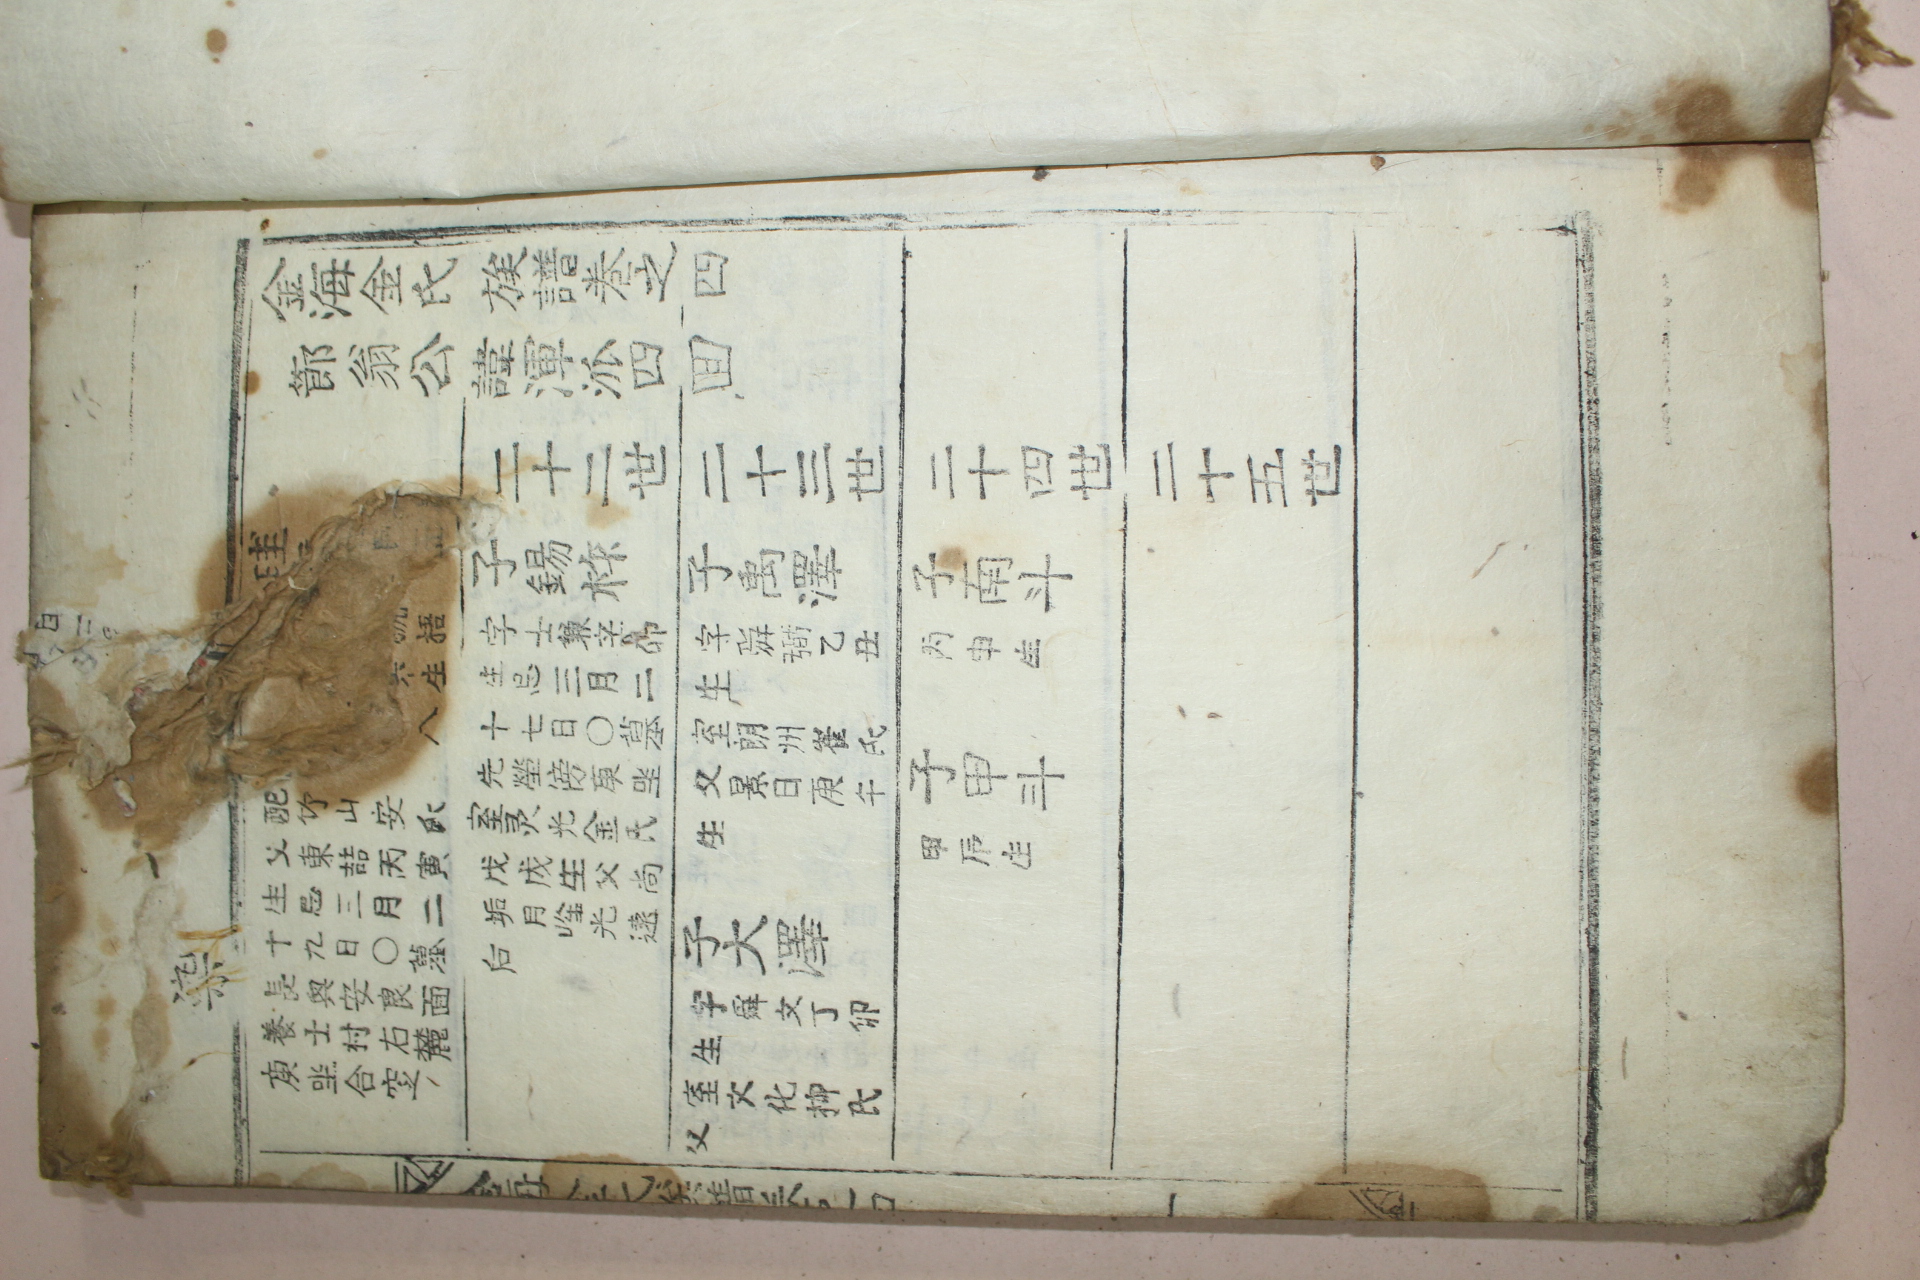 金海金氏族譜卷之四
節翁公諱渾派四
二十二世
二十三世
二十四世
二十五世
梧
生
八
配竹山安氏
父東喆丙寅
生忌三月二
十九日○墓
長興安良面
養士村右麓
庚坐合窆
子錫
字士兼辛卯
生忌三月二
十七日○墓
先塋傍庚坐
室灵光金氏
戊戌生父尚
垢月峰光遠
后
子禹澤
字舜弼乙丑
生
室朗州崔氏
父景日庚午
生
子大澤
字舜文丁卯
生
室文化柳氏
父
子南斗
丙申生
子甲斗
甲辰生